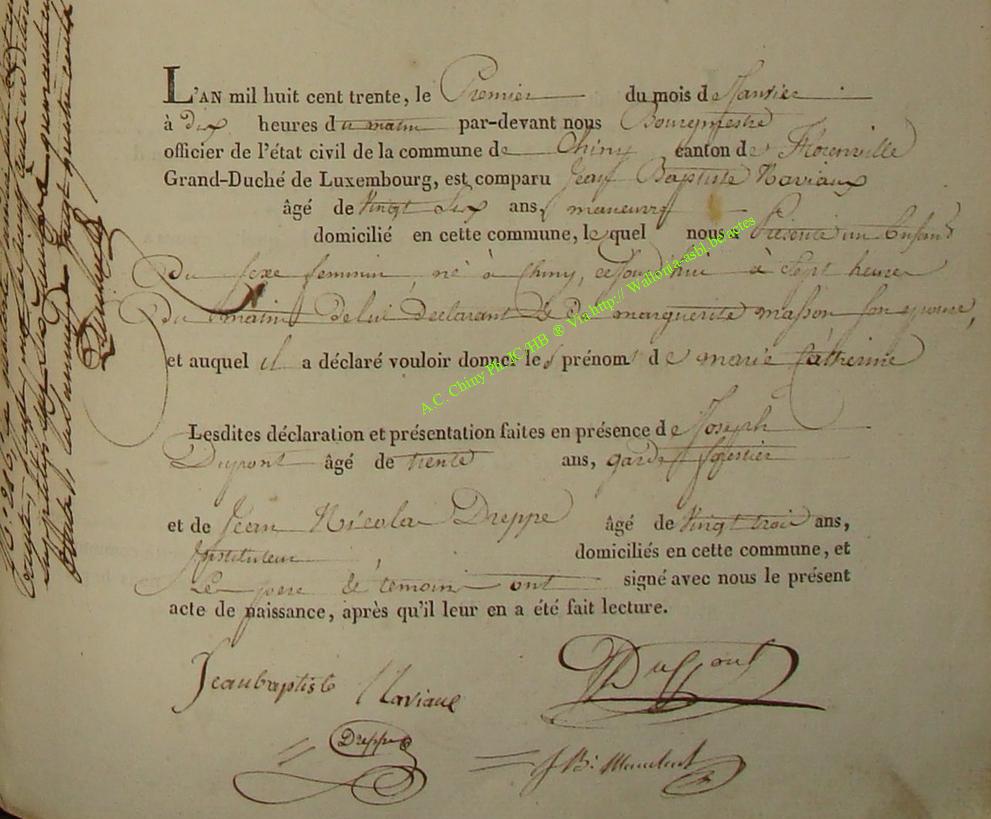 L'AN mil huit cent trente, le Premier du mois de Janvier
à dix heures du matin par-devant nous Bourgmestre
officier de l'état civil de la commune de Chiny canton de Florenville
Grand-Duché de Luxembourg, est comparu Jean Baptiste Naviaux
âgé de vingt six ans, manœuvre
domicilié en cette commune, lequel nous a Présenté un Enfant
Du sexe feminin, né à Chiny, cejourd'hui à Sept heures
Du matin De lui déclarant Et de marguerite masson son epouse,
et auquel il a déclaré vouloir donner les prénoms de marie Catherinne
Lesdites déclaration et présentation faites en présence de Joseph
Dupont âgé de trente ans, garde forestier
et de Jean Nicolas Dreppe âgé de vingt trois ans,
Instituteur, domiciliés en cette commune, et
Le pere & témoins ont signé avec nous le présent
acte de naissance, après qu'il leur en a été fait lecture.
Jean baptiste Naviaux
Dupont
Dreppe
J. B.
A.C. Chiny Ph JC HB ® Via http:// Wallonia-asbl.be/actes